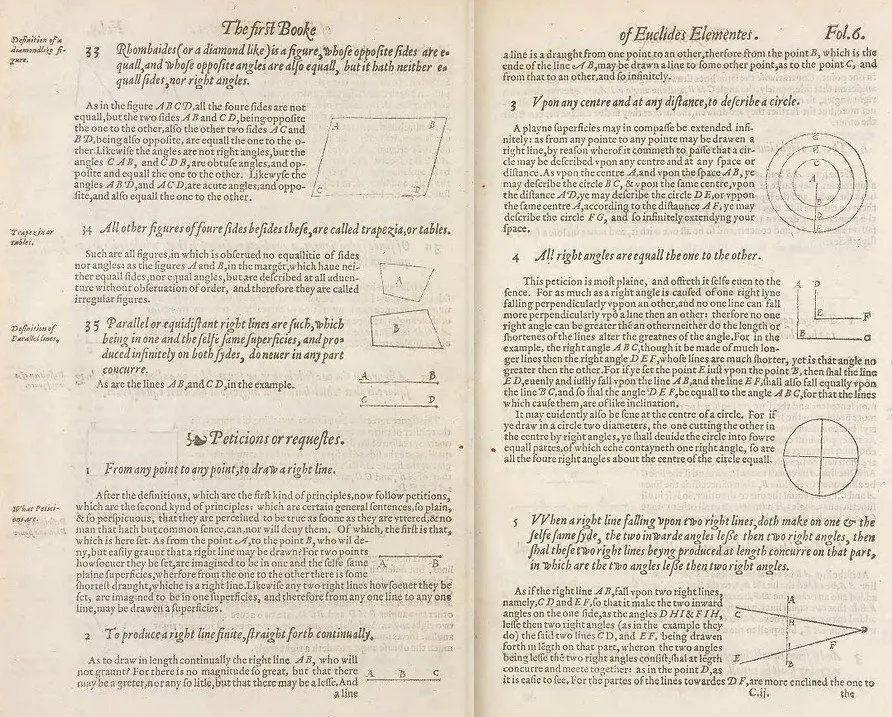 The first Booke
Definition of a
diamondlike fi-
gure.
33 Rhombaides (or a diamond like) is a figure, whose opposite sides are e-
quall, and whose opposite angles are also equall, but it hath neither e-
quall sides, nor right angles.
As in the figure A B C D, all the foure sides are not
equall, but the two sides A B and C D, being opposite
the one to the other, also the other two sides A C and
B D, being also opposite, are equall the one to the o-
ther. Likewise the angles are not right angles, but the
angles C A B, and C D B, are obtuse angles, and op-
posite and equall the one to the other. Likewyse the
angles A B D, and A C D, are acute angles, and oppo-
site, and also equall the one to the other.
A B
C D
Trapezia or
tables.
34 All other figures of foure sides besides these, are called trapezia, or tables.
Such are all figures, in which is obserued no equallitie of sides
nor angles: as the figures A and B, in the margēt, which haue nei-
ther equall sides, nor equal angles, but are described at all aduen-
ture without obseruation of order, and therefore they are called
irregular figures.
A
B
Definition of
Parallel lines.
35 Parallel or equidistant right lines are such, which
being in one and the selfe same superficies, and pro-
duced infinitely on both sydes, do neuer in any part
concurre.
As are the lines A B, and C D, in the example.
A B
C D
Peticions or requestes.
1 From any point to any point, to draw a right line.
What Petici-
ons are.
After the definitions, which are the first kind of principles, now follow petitions,
which are the second kynd of principles: which are certain general sentences, so plain,
& so perspicuous, that they are perceiued to be true as soone as they are vttered, & no
man that hath but common sence, can, nor will deny them. Of which, the first is that,
which is here set. As from the point A, to the point B, who wil de-
ny, but easily graunt that a right line may be drawn? For two points
howsoeuer they be set, are imagined to be in one and the selfe same
plaine superficies, wherfore from the one to the other there is some
shortest draught, whiche is a right line. Likewise any two right lines howsoeuer they be
set, are imagined to be in one superficies, and therefore from any one line to any one
line, may be drawen a superficies.
A B
2 To produce a right line finite, straight forth continually.
As to draw in length continually the right line A B, who will
not graunt? For there is no magnitude so great, but that there
may be a greter, nor any so litle, but that there may be a lesse. And
A B C
a line
of Euclides Elementes. Fol.6.
a line is a draught from one point to an other, therfore from the point B, which is the
ende of the line A B, may be drawn a line to some other point, as to the point C, and
from that to an other, and so infinitely.
3 Vpon any centre and at any distance, to describe a circle.
A playne superficies may in compasse be extended infi-
nitely: as from any pointe to any pointe may be drawen a
right line, by reason wherof it commeth to passe that a cir-
cle may be described vpon any centre and at any space or
distance. As vpon the centre A, and vpon the space A B, ye
may describe the circle B C, & vpon the same centre, vpon
the distance A D, ye may describe the circle D E, or vppon
the same centre A, according to the distaunce A F, ye may
describe the circle F G, and so infinitely extendyng your
space.
G
E
C
A
B
D
F
4 All right angles are equall the one to the other.
This peticion is most plaine, and offreth it selfe euen to the
sence. For as much as a right angle is caused of one right lyne
falling perpendicularly vppon an other, and no one line can fall
more perpendicularly vpō a line then an other: therfore no one
right angle can be greater thē an other: neither do the length or
shortenes of the lines alter the greatnes of the angle. For in the
example, the right angle A B C, though it be made of much lon-
ger lines then the right angle D E F, whose lines are much shorter, yet is that angle no
greater then the other. For if ye set the point E iust vpon the point B, then shal the line
E D, euenly and iustly fall vpon the line A B, and the line E F, shall also fall equally vpon
the line B C, and so shal the angle D E F, be equall to the angle A B C, for that the lines
which cause them, are of like inclination.
A D
E F
B C
It may euidently also be sene at the centre of a circle. For if
ye draw in a circle two diameters, the one cutting the other in
the centre by right angles, ye shall deuide the circle into fowre
equall partes, of which eche contayneth one right angle, so are
all the foure right angles about the centre of the circle equall.
5 When a right line falling vpon two right lines, doth make on one & the
selfe same syde, the two inwarde angles lesse then two right angles, then
shal these two right lines beyng produced at length concurre on that part,
in which are the two angles lesse then two right angles.
As if the right line A B, fall vpon two right lines,
namely, C D and E F, so that it make the two inward
angles on the one side, as the angles D H I & F I H,
lesse then two right angles (as in the example they
do) the said two lines C D, and E F, being drawen
forth in lēgth on that part, wheron the two angles
being lesse thē two right angles consist, shal at lēgth
concurre and meete together: as in the point D, as
it is easie to see. For the partes of the lines towardes D F, are more enclined the one to
A
C
H
D
F
I
E
B
C.ij. the